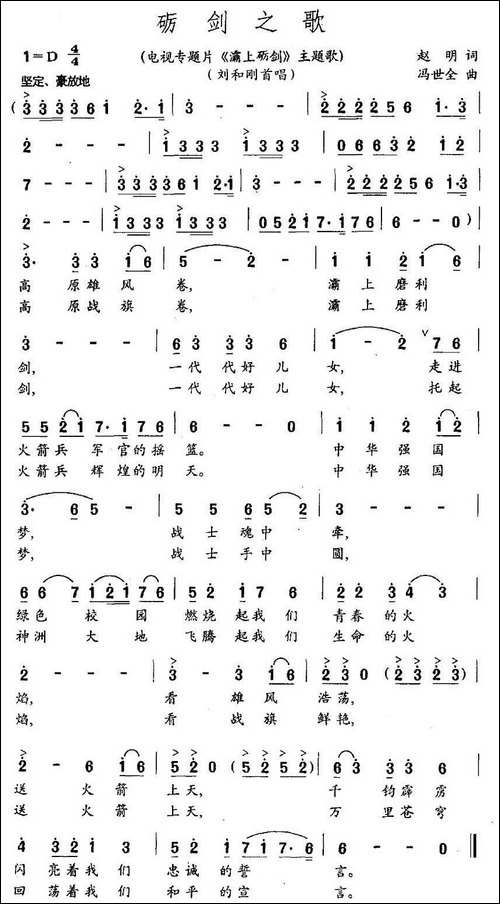 砺剑之歌
1=D 4/4 (电视专题片《灞上砺剑》主题歌) 赵明词
坚定、豪放地 (刘和刚首唱) 冯世全曲
(3 3 3 3 6 1 2·1 | 3 - - - | 2 2 2 2 5 6 1·3 |
2 - - - | 1 3 3 3 1 3 3 3 | 0 6 6 3 2 1 2 |
7 - - - | 3 3 3 3 6 1 2·1 | 3 - - - | 2 2 2 2 5 6 1·3 |
2 - - - | 1 3 3 3 1 3 3 3 | 0 5 2 1 7·1 7 6 | 6 - - 0 ) |
3· 3 3 1 6 | 5 - 2 - | 1 1 2 1 6 |
高原雄风卷, 灞上磨利
高原战旗卷, 灞上磨利
3 - - - | 6 3 3 3 6 | 1 - 2 ∨ 7 6 |
剑, 一代代好儿女, 走进
剑, 一代代好儿女, 托起
5 5 2 1 7·1 7 6 | 6 - - 0 | 2 2 0 1 2 |
火箭兵军官的摇篮。 中华强国
火箭兵辉煌的明天。 中华强国
3· 6 5 - | 5 5 6 5 2 | 3 - - - |
梦, 战士魂中牵,
梦, 战士手中圆,
6 6 7 1 2 1 7 1 | 5 2 1 7 6 | 2 2 3 4 3 |
绿色校园燃烧起我们青春的火
神洲大地飞腾起我们生命的火
2 - - - | 3 - 3 1 6 | 2 3 0 ( 2 3 2 3 ) |
焰, 看雄风浩荡,
焰, 看战旗鲜艳,
2 - 6 1 2 1 | 5 2 0 ( 5 2 5 2 ) | 6 3 3 3 6 |
送火箭上天, 千钧霹雳
送火箭上天, 万里苍穹
4 3 2 2 1 3 | 2 5 2 1 7 1 7·6 | 6 - - 0 ‖
闪亮着我们忠诚的誓言。
回荡着我们和平的宣言。